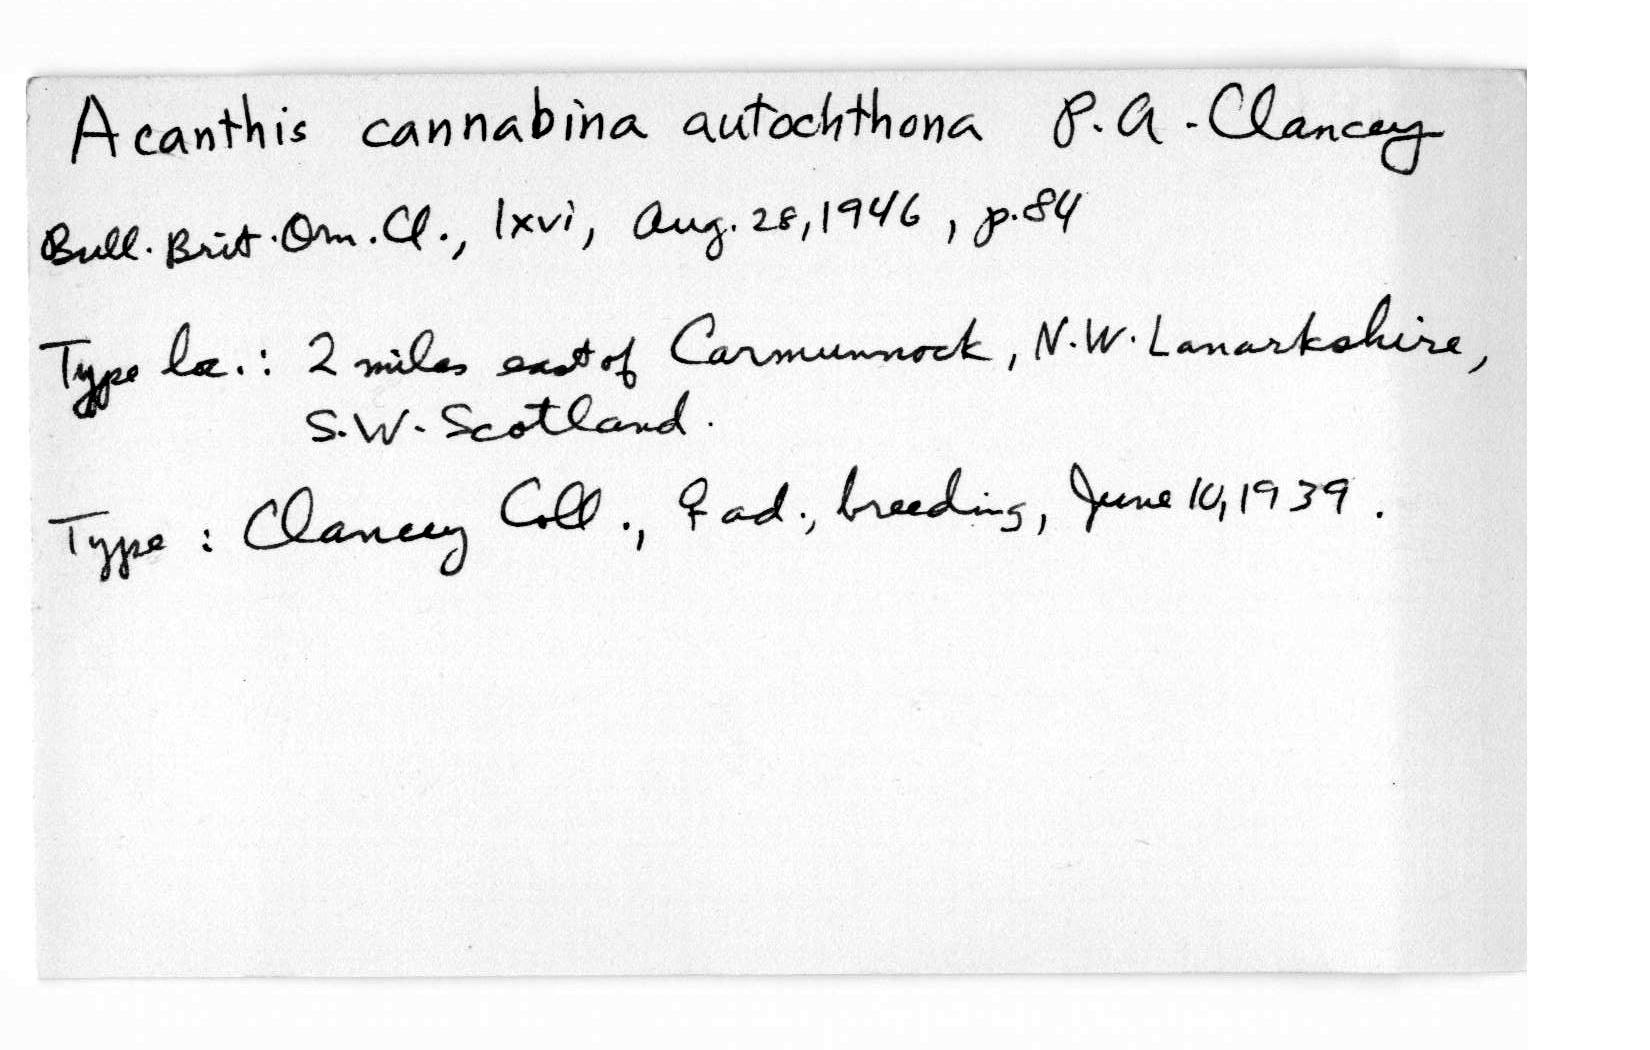 Acanthis cannabina autochthona P. A. Clancey
Bull. Brit. Orn. Cl., lxvi, Aug. 28, 1946, p. 84
Type loc.: 2 miles east of Carmunnock, N.W. Lanarkshire,
S.W. Scotland.
Type: Clancey Coll., ♀ ad., breeding, June 10, 1939.